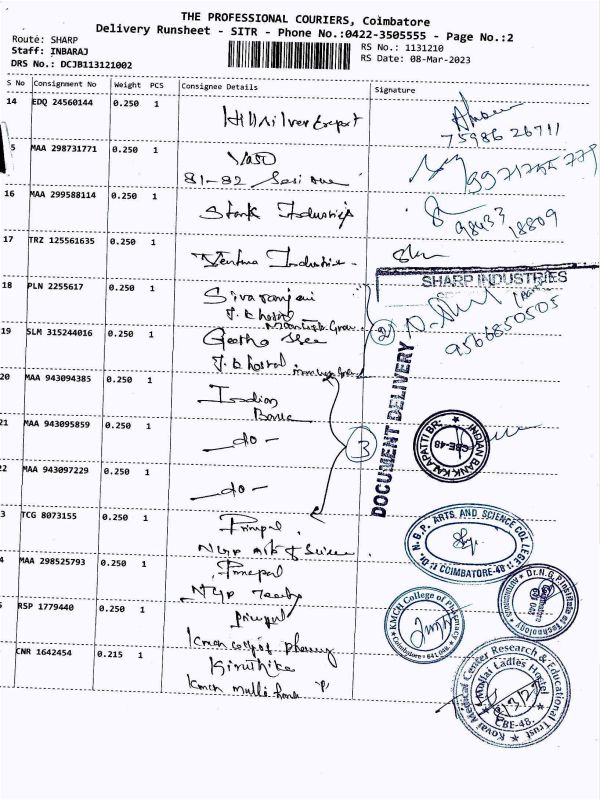 THE PROFESSIONAL COURIERS, Coimbatore
Delivery Runsheet - SITR - Phone No.:0422-3505555 - Page No.:2
Route: SHARP
Staff: INBARAJ
DRS No.: DCJB113121002
RS No.: 1131210
RS Date: 08-Mar-2023
S No Consignment No Weight PCS Consignee Details Signature
14 EDQ 24560144 0.250 1
75986 26711
5 MAA 298731771 0.250 1
81-82
16 MAA 299588114 0.250 1 Stark Industries
98433
18809
17 TRZ 125561635 0.250 1 Ventura Industries
SHARP INDUSTRIES
18 PLN 2255617 0.250 1 Sivaranjani
9566850505
2
19 SLM 315244016 0.250 1 Geetha Shree
DOCUMENT DELIVERY
20 MAA 943094385 0.250 1 Indian
Bank
INDIAN BANK KALAPATTI BR.
CBE-48
21 MAA 943095859 0.250 1 -do-
3
22 MAA 943097229 0.250 1 -do-
3 TCG 8073155 0.250 1 Principal
NGP Arts & Science
Dr. N.G.P. ARTS AND SCIENCE COLLEGE
COIMBATORE-48
4 MAA 298525793 0.250 1 Principal
NGP
Dr.N.G.P Institute of Technology
Coimbatore
RSP 1779440 0.250 1 principal
kmch college of pharmacy
KMCH College of Pharmacy
Coimbatore - 641 048
CNR 1642454 0.215 1 Kiruthika
kmch mullai home
Kovai Medical Center Research & Educational Trust
Mullai Ladies Hostel
CBE-48.